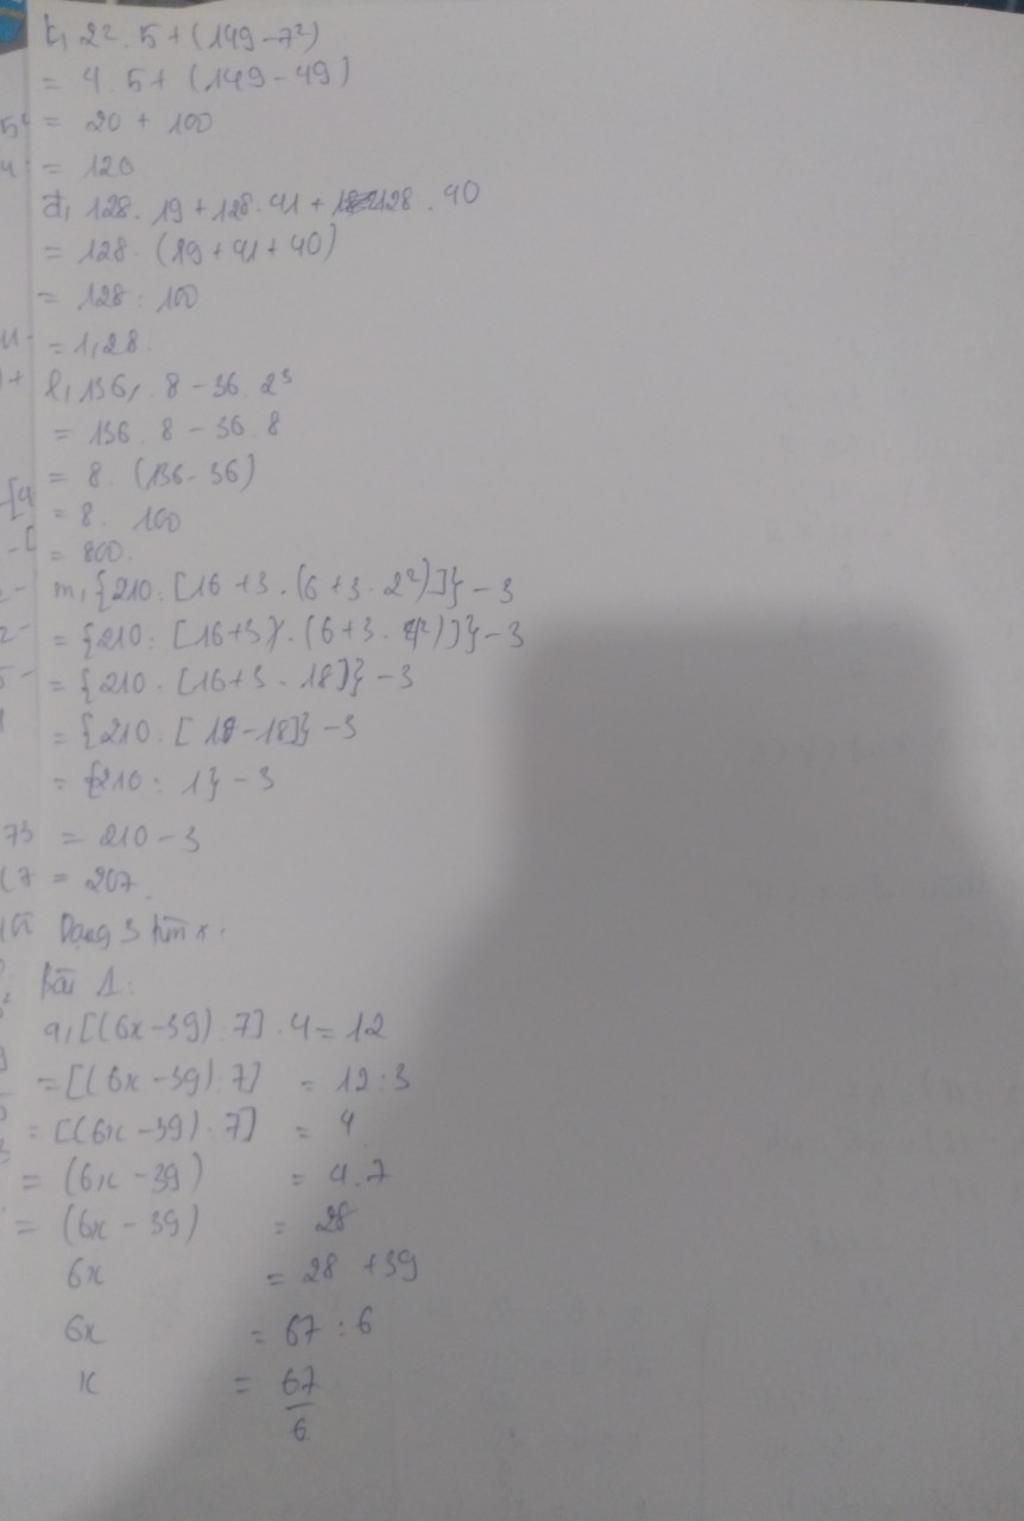 k, 2². 5 + (149 - 7²)
= 4. 5 + (149 - 49)
= 20 + 100
= 120
đ, 128. 19 + 128. 41 + 128. 40
= 128. (19 + 41 + 40)
= 128 : 100
= 1,28.
l, 136. 8 - 36. 2³
= 136. 8 - 36. 8
= 8. (136 - 36)
= 8. 100
= 800.
m, {210 : [16 + 3. (6 + 3. 2²)]} - 3
= {210 : [16 + 3). (6 + 3. 4)]} - 3
= {210. [16 + 3 - 18]} - 3
= {210. [19 - 18]} - 3
= {210 : 1} - 3
= 210 - 3
= 207.
Dạng 3 tìm x.
Bài 1:
a, [(6x - 39) : 7]. 4 = 12
= [(6x - 39) : 7] = 12 : 3
= [(6x - 39) : 7] = 4
= (6x - 39) = 4. 7
= (6x - 39) = 28
6x = 28 + 39
6x = 67 : 6
x = 67/6